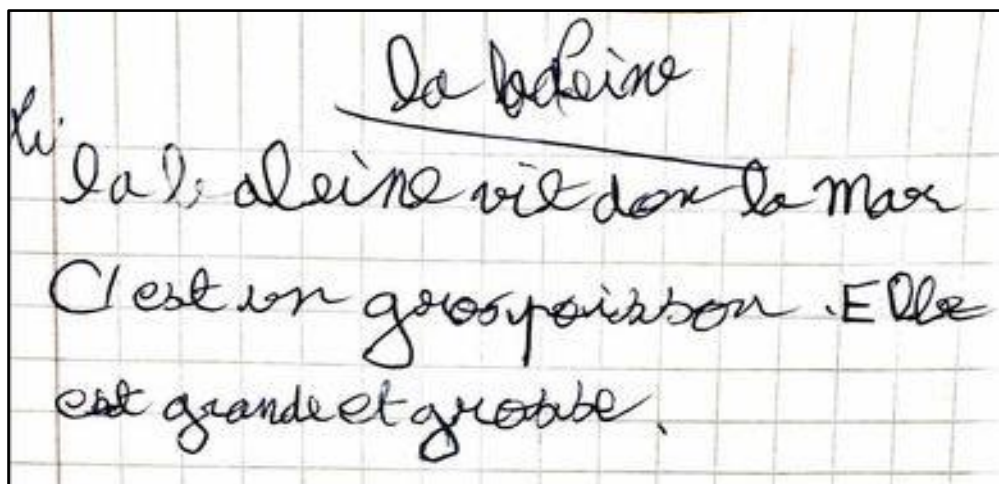 la baleine
la baleine vit dan la mar
C'est un gros poisson. Elle
est grande et grosse.